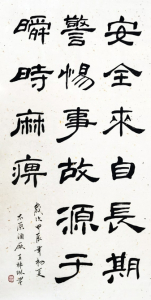 安全來自長期
警惕事故源于
瞬時麻痹
歲次甲辰年初夏